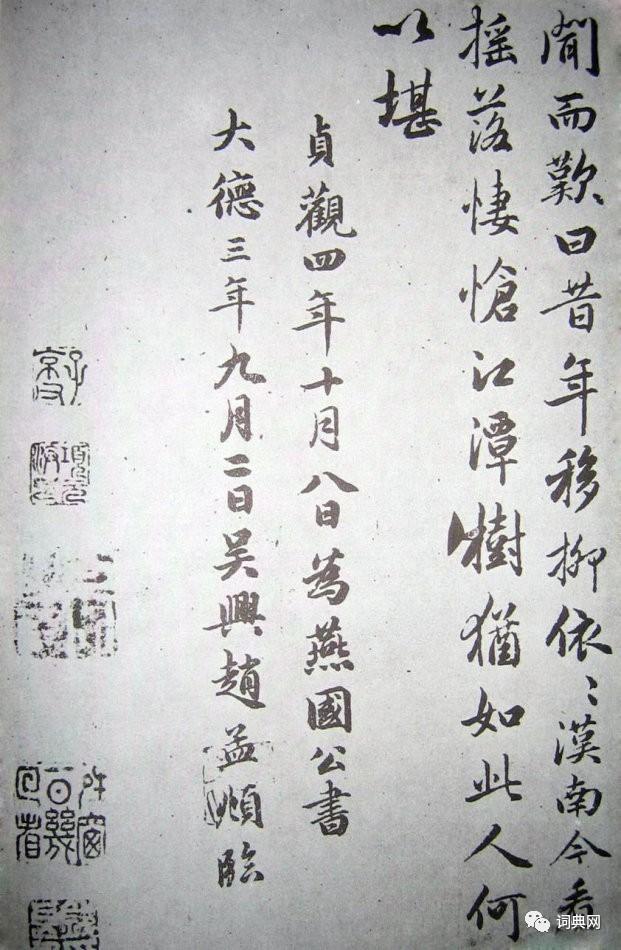 聞而歎曰昔年移柳依〻漢南今看
搖落悽愴江潭樹猶如此人何
以堪
貞觀四年十月八日為燕國公書
大德三年九月二日吳興趙孟頫臨
词典网